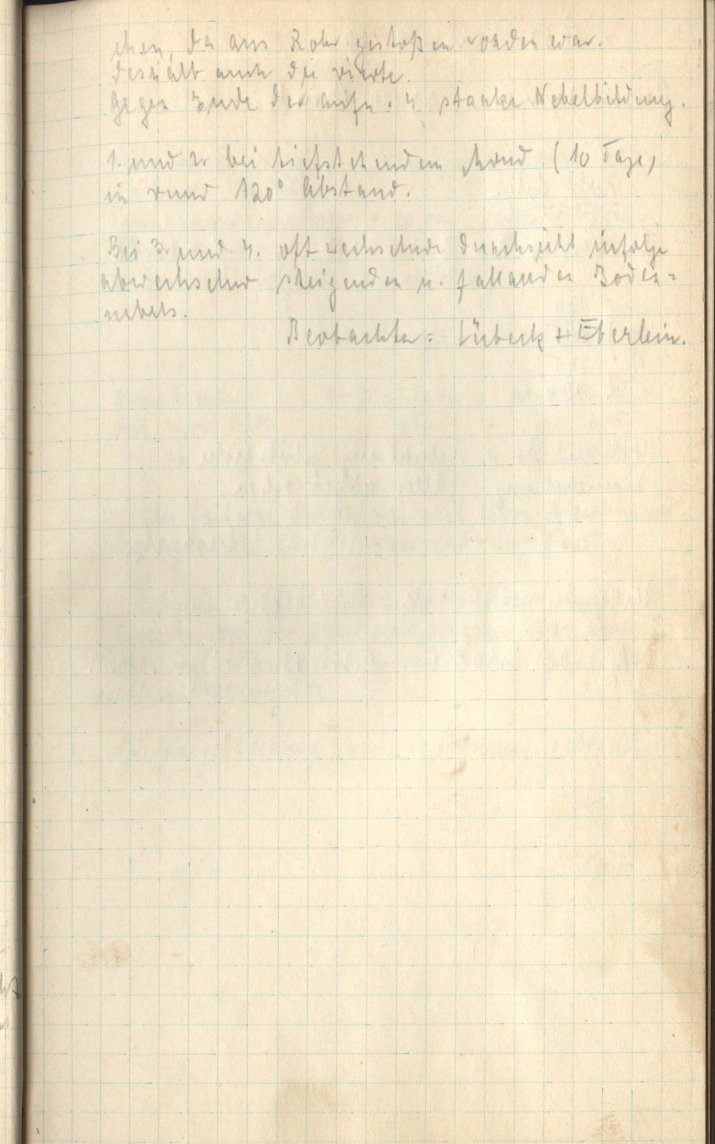 chen, da ans Rohr gestoßen worden war.
Deshalb auch die vierte.
Gegen Ende der Aufn. 4 starke Nebelbildung.
1. und 2. bei tiefstehendem Mond (10 Tage)
in rund 120° Abstand.
Bei 3. und 4. oft wechselnde Durchsicht infolge
abwechselnd steigenden u. fallenden Boden=
nebels.
Beobachter: Lübeck + Eberlein.